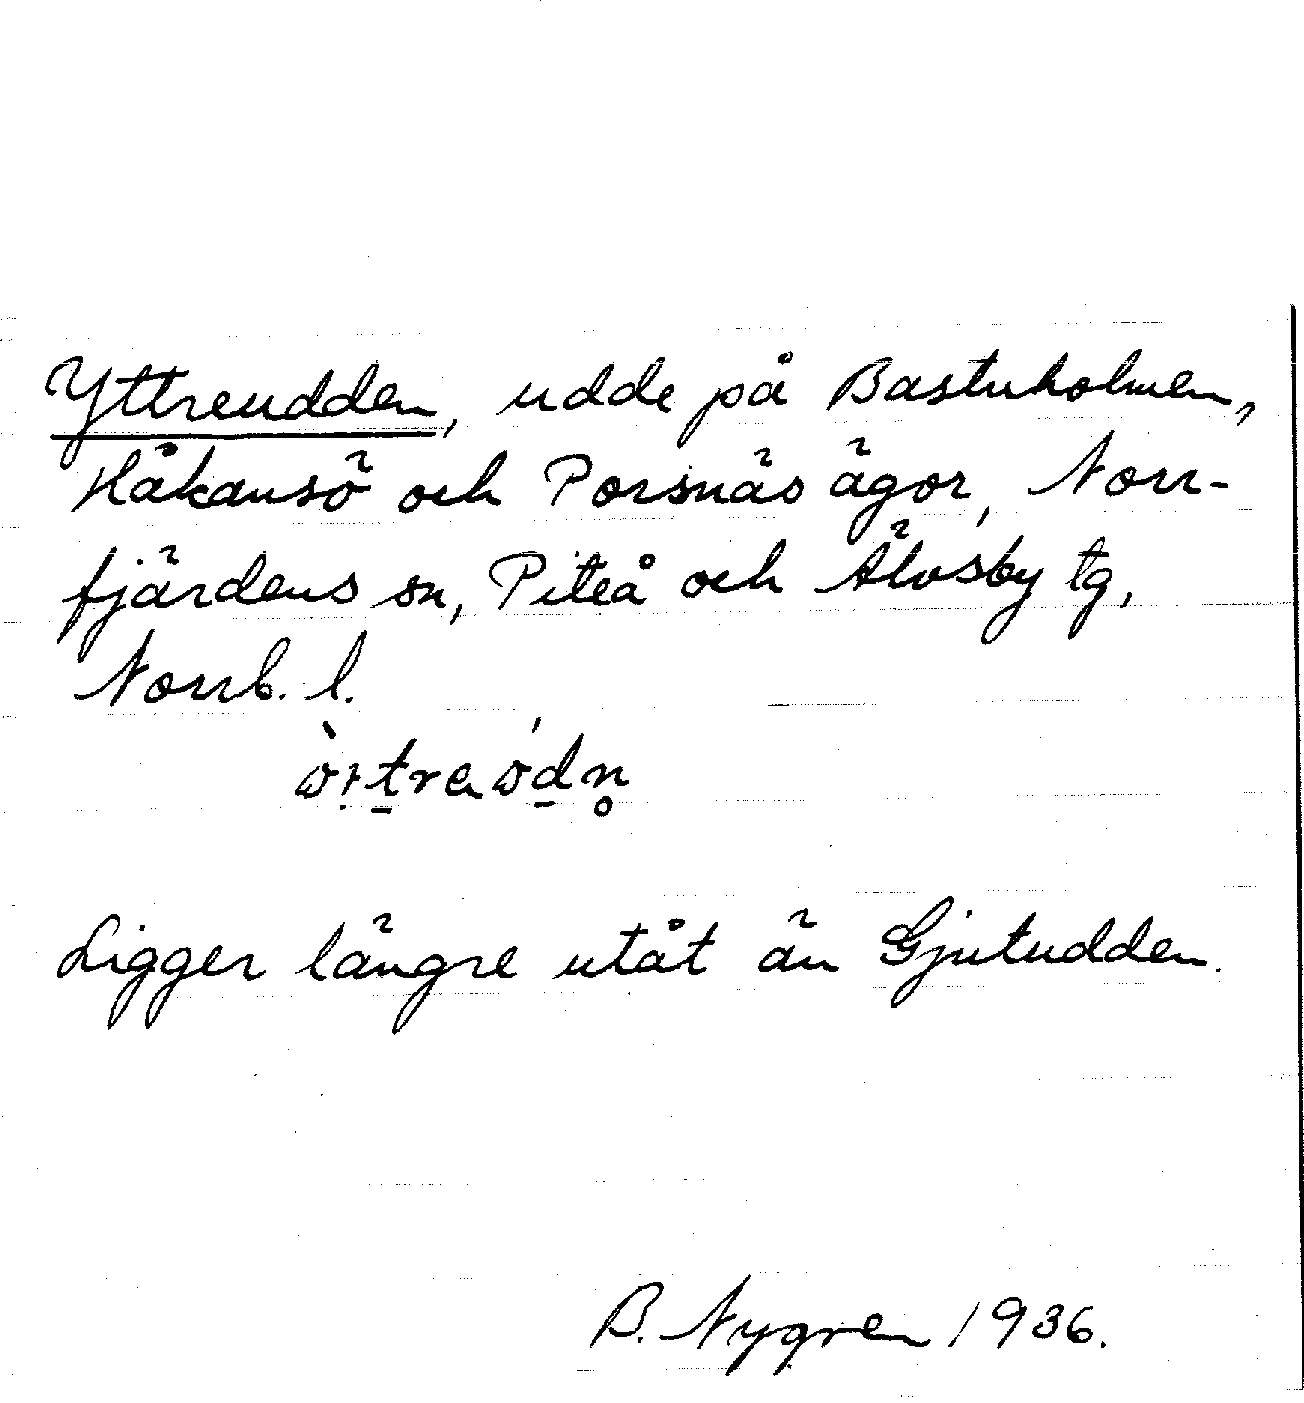 Yttreudden, udde på Bastuholmen,
Håkansö och Porsnäs ägor, Norr-
fjärdens sn, Piteå och Älvsby tg,
Norrb. l.
Ligger längre utåt än Gjutudden.
B. Nygren 1936.